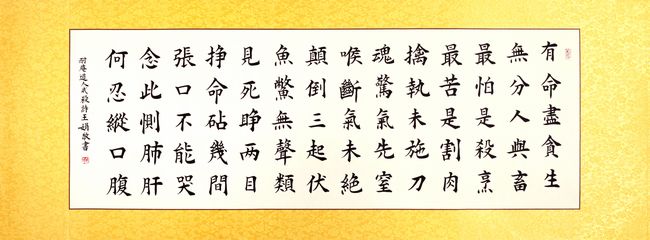 有命盡貪生
無分人與畜
最怕是殺烹
最苦是割肉
擒執未施刀
魂驚氣先窒
喉斷氣未絕
顛倒三起伏
魚鱉無聲類
見死睜两目
掙命砧幾間
張口不能哭
念此惻肺肝
何忍縱口腹
耐庵道人戒殺詩王娟敬書